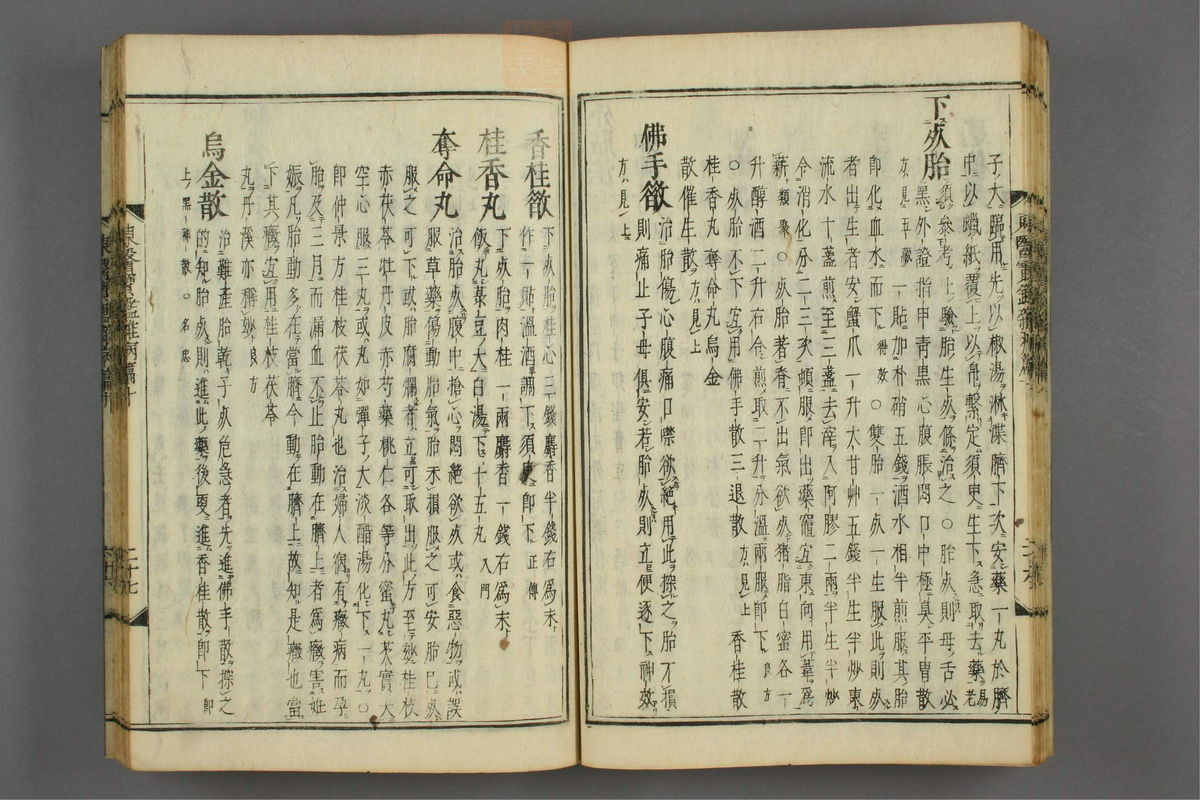 子大腸用先以椒湯淋渫臍下次安藥一丸於臍
中以蠟紙覆上以帛繫定須臾生下急取去藥
下死胎
須參考上驗胎生死條治之○胎死則母舌必
黑外證指甲青黑心腹脹悶口中極臭平胃散
方見五臟一貼加朴硝五錢酒水相半煎服其胎
即化血水而下得效○雙胎一死一生服此則死
者出生者安蟹爪一升大甘艸五錢半生半炒東
流水十盞煎至三盞去滓入阿膠二兩半生半炒
令消化分二三次頓服即出藥竈宜東向用葦爲
薪類聚○死胎若者不出氣欲死猪脂白蜜各一
升醇酒二升右合煎取二升分溫兩服即下良方
○死胎不下宜用佛手散三退散方見上香桂散
桂香丸奪命丸烏金
散催生散方見上
佛手散
治胎傷心腹痛口噤欲絕用此探之胎不損
則痛止子母俱安若胎死則立便逐下神效
方見上
香桂散
下死胎桂心三錢麝香半錢右爲末
作一貼溫酒調下須臾即下正傳
桂香丸
下死胎肉桂一兩麝香一錢右爲末
飯丸菉豆大白湯下十五丸入門
奪命丸
治胎死腹中搶心悶絕欲死或食惡物或誤
服草藥傷動胎氣胎未損服之可安胎已死
服之可下或胎腐爛者立可取出此方至妙桂枝
赤茯苓牡丹皮赤芍藥桃仁各等分蜜丸芡實大
空心服三丸或丸如彈子大淡醋湯化下一丸○
即仲景方桂枝茯苓丸也治婦人宿有癥病而孕
胎及三月而漏血不止胎動在臍上者爲癥害妊
娠凡胎動多在當臍今動在臍上故知是癥也當
下其癥宜用桂枝茯苓
丸丹溪亦稱妙良方
烏金散
治難產胎乾子死危急者先進佛手散探之
的知胎死則進此藥後更進香桂散即下即
上黑神散○名忠